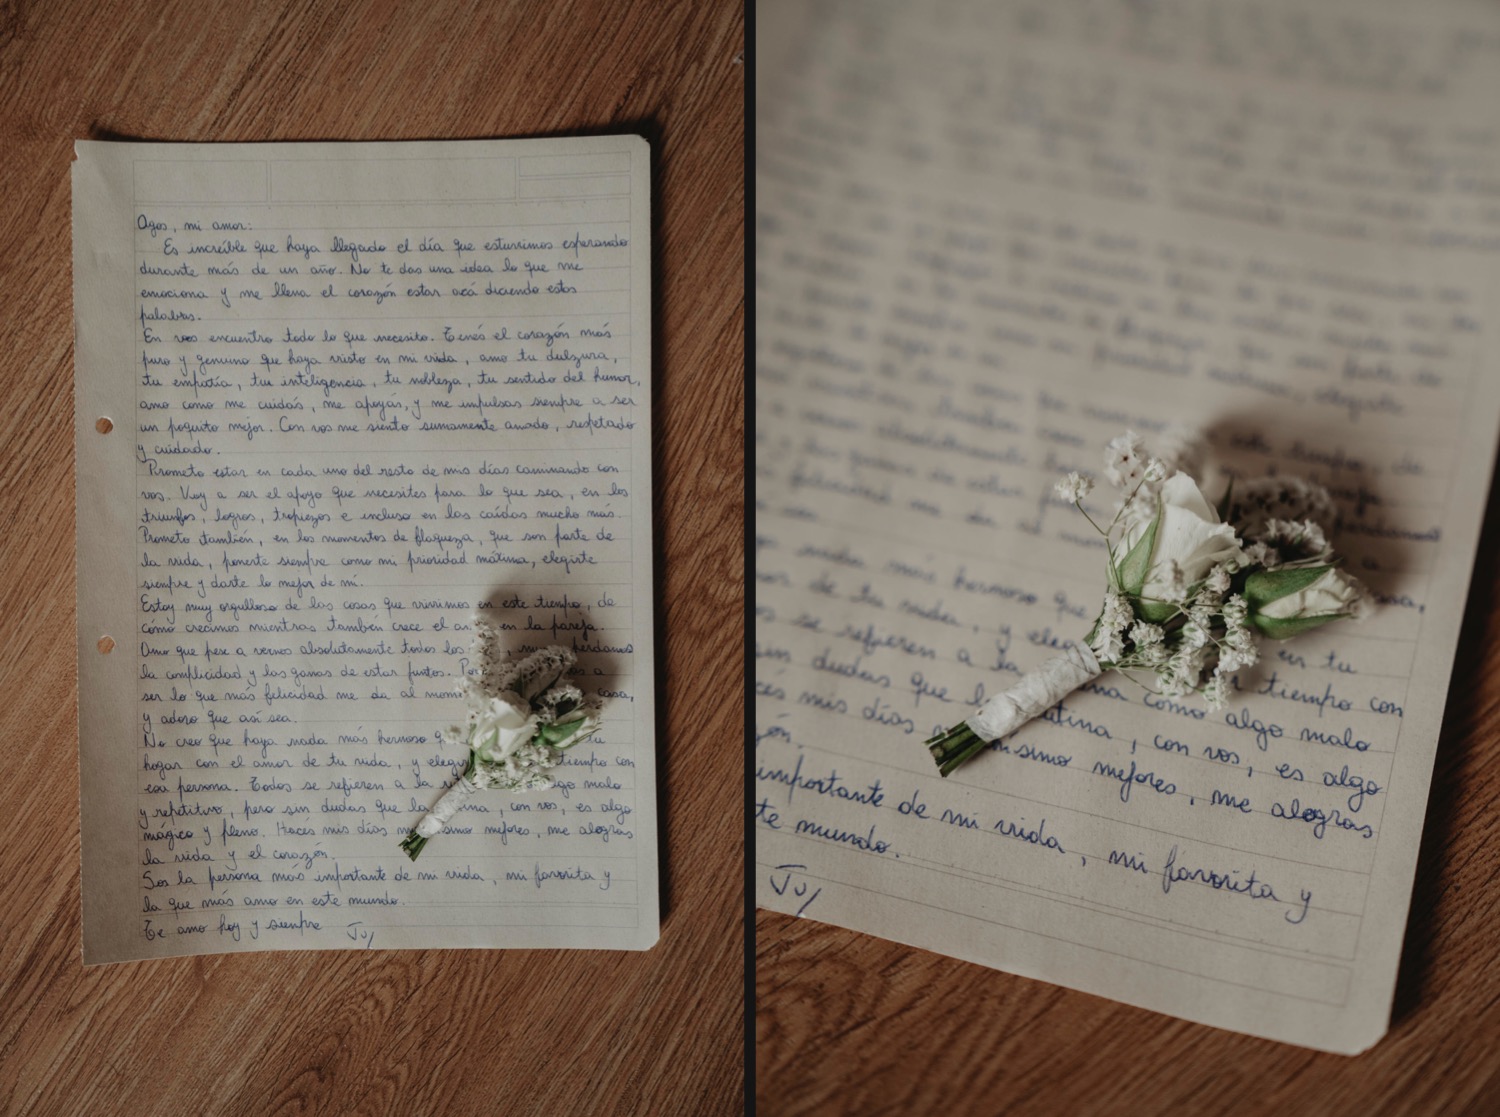 Agos, mi amor:
Es increíble que haya llegado el día que estuvimos esperando
durante más de un año. No te das una idea lo que me
emociona y me llena el corazón estar acá diciendo estas
palabras.
En vos encuentro todo lo que necesito. Tenés el corazón más
puro y genuino que haya visto en mi vida, amo tu dulzura,
tu empatía, tu inteligencia, tu nobleza, tu sentido del humor,
amo como me cuidás, me apoyás, y me impulsas siempre a ser
un poquito mejor. Con vos me siento sumamente amado, respetado
y cuidado.
Prometo estar en cada uno del resto de mis días caminando con
vos. Voy a ser el apoyo que necesites para lo que sea, en los
triunfos, logros, tropiezos e incluso en las caídas mucho más.
Prometo también, en los momentos de flaqueza, que son parte de
la vida, ponerte siempre como mi prioridad máxima, elegirte
siempre y darte lo mejor de mí.
Estoy muy orgulloso de las cosas que vivimos en este tiempo, de
cómo crecimos mientras también crece el en la pareja.
Amo que pese a vernos absolutamente todos los perdamos
la complicidad y las ganas de estar juntos. a
ser lo que más felicidad me da al casa,
y adoro que así sea.
No creo que haya nada más hermoso que tu
hogar con el amor de tu vida, y tiempo con
esa persona. Todos se refieren a la algo malo
y repetitivo, pero sin dudas que la con vos, es algo
mágico y pleno. Hacés mis días mejores, me alegras
la vida y el corazón.
Sos la persona más importante de mi vida, mi favorita y
la que más amo en este mundo.
Te amo hoy y siempre Ju/
este tiempo, de
perdamos
a
casa,
nada más hermoso que en tu
de tu vida, y tiempo con
se refieren a la como algo malo
sin dudas que la rutina, con vos, es algo
mis días mejores, me alegras
importante de mi vida, mi favorita y
te mundo.
Ju/